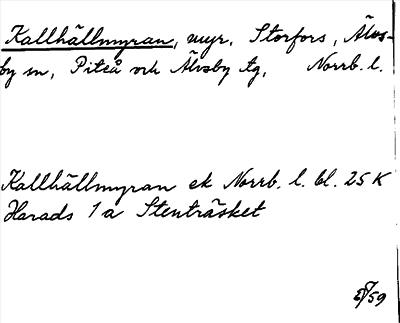 Kallhällmyran, myr, Storfors, Älvs-
by sn, Piteå och Älvsby tg, Norrb. l.
Kallhällmyran ek Norrb. l. bl. 25 K
Harads 1 a Stenträsket
59